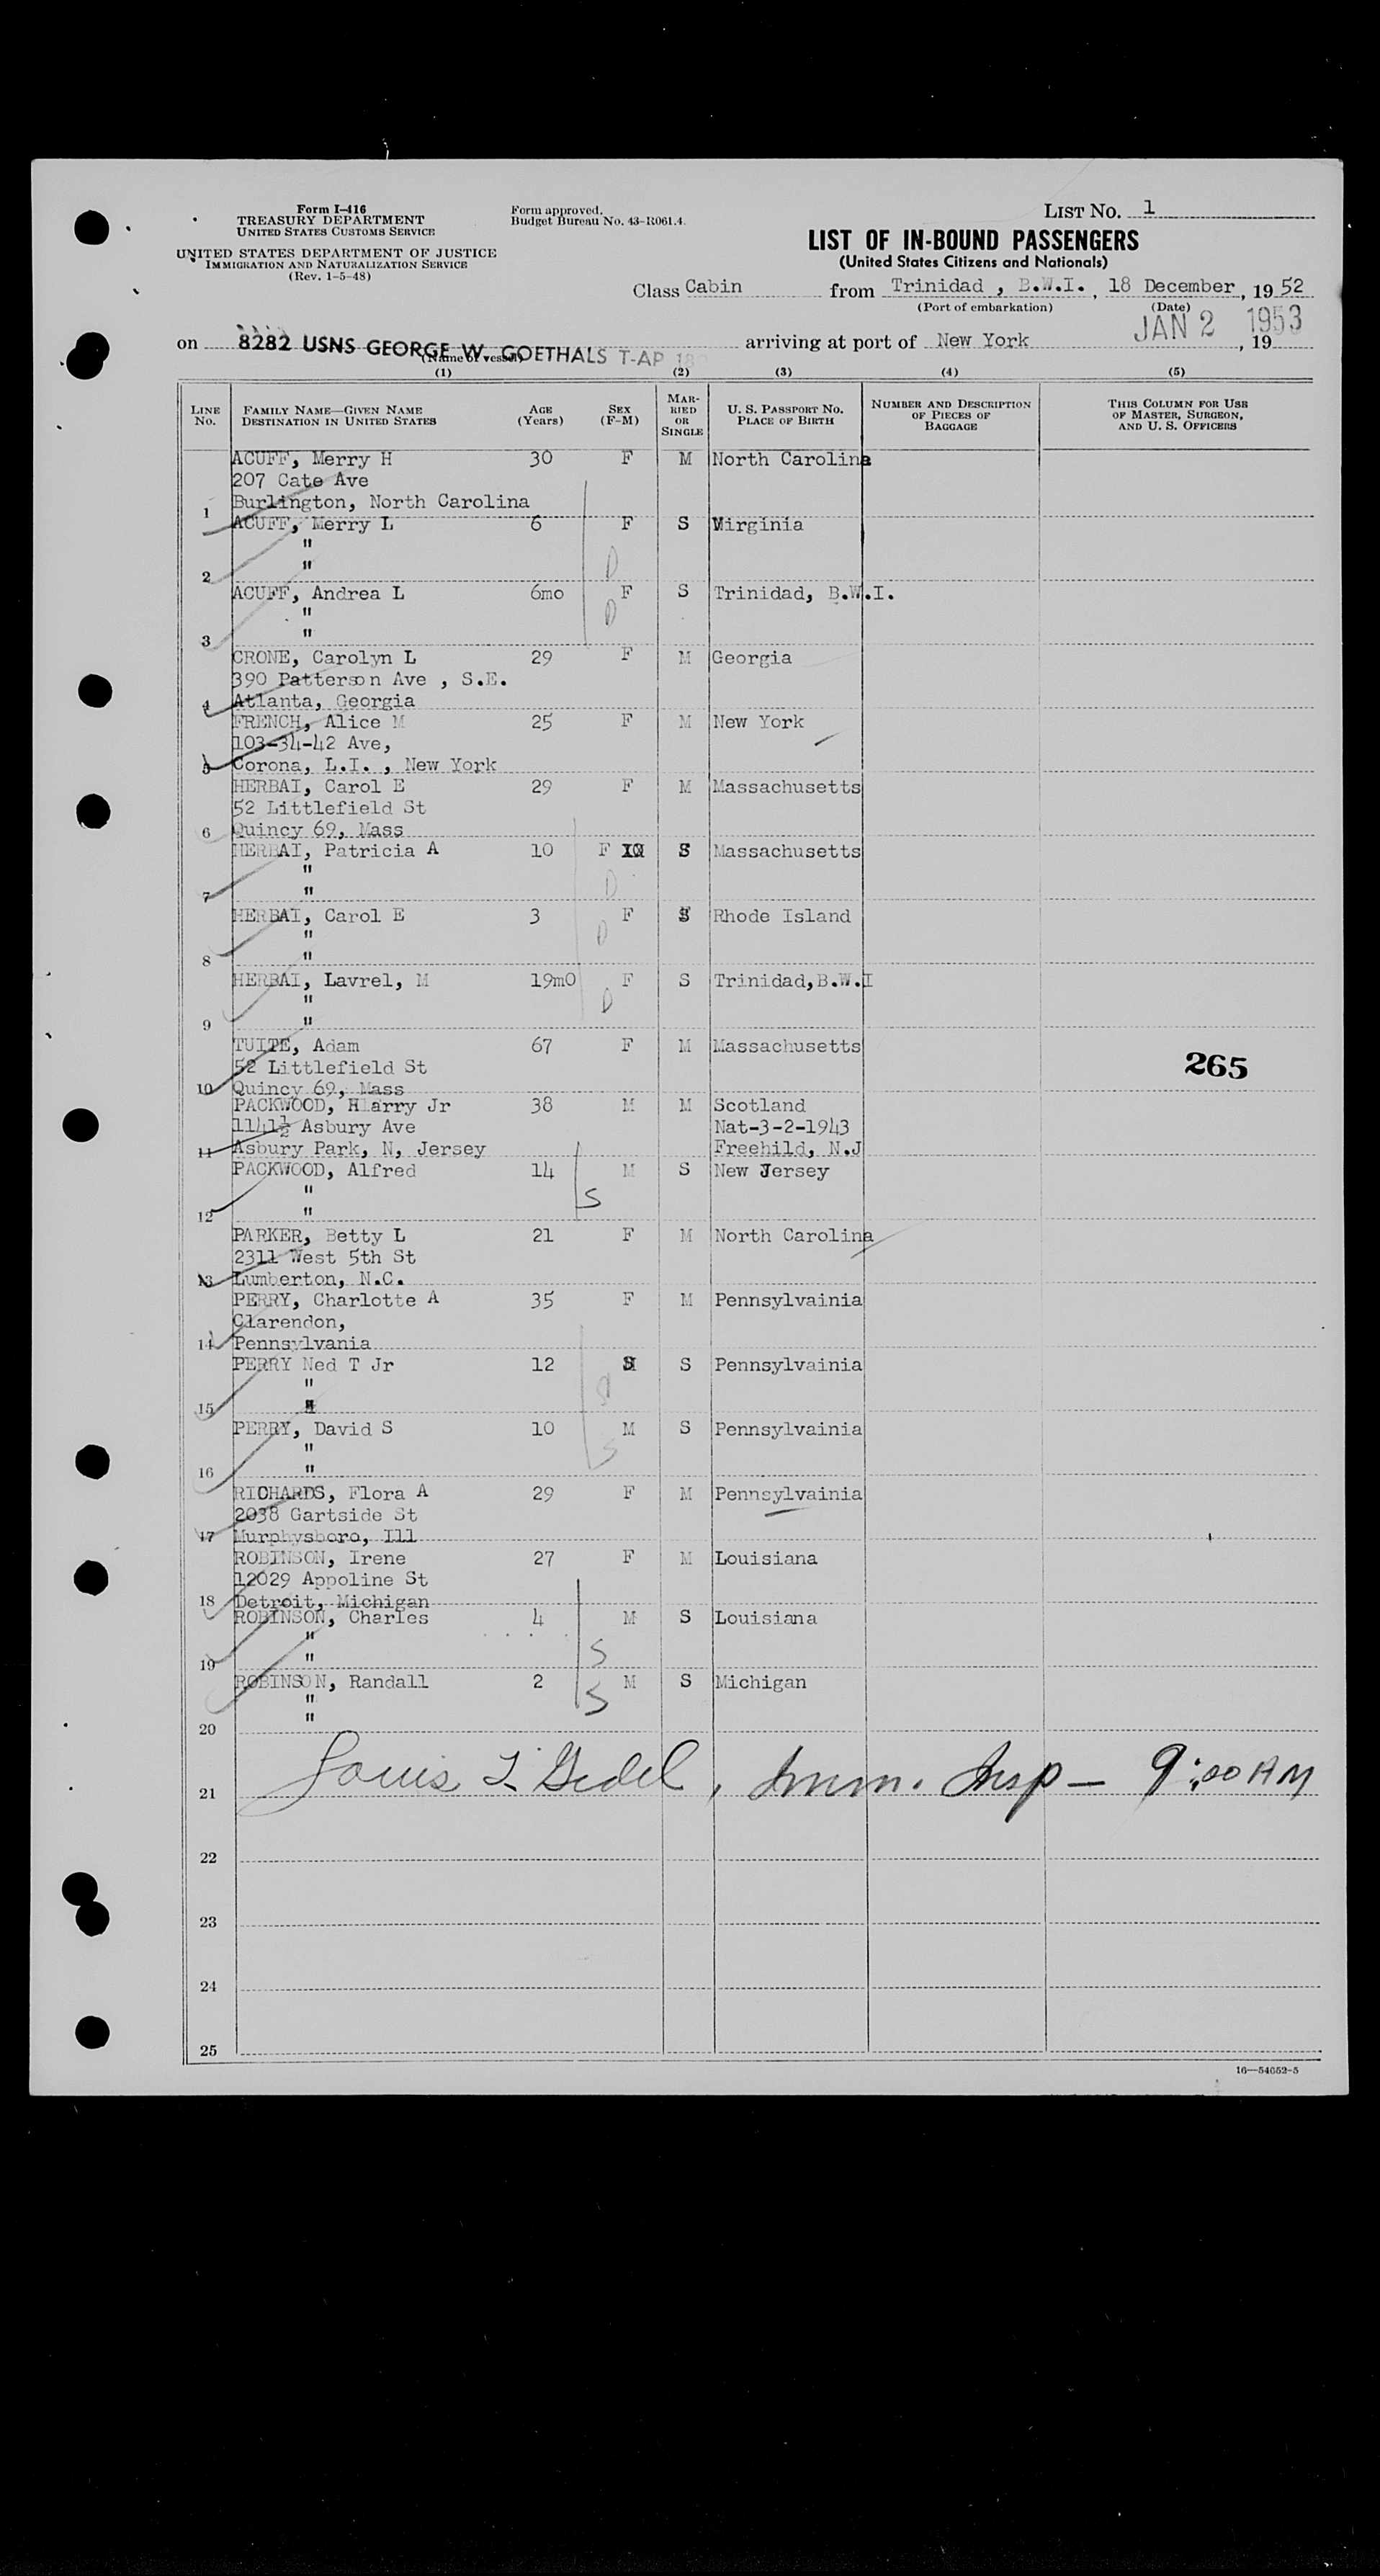 Form I-416
TREASURY DEPARTMENT
UNITED STATES CUSTOMS SERVICE
UNITED STATES DEPARTMENT OF JUSTICE
IMMIGRATION AND NATURALIZATION SERVICE
(Rev. 1-5-48)
Form approved.
Budget Bureau No. 43-R061.4.
LIST No. 1
LIST OF IN-BOUND PASSENGERS
(United States Citizens and Nationals)
Class Cabin from Trinidad , B.W.I. , 18 December, 1952
(Port of embarkation) (Date)
on 8282 USNS GEORGE W. GOETHALS T-AP arriving at port of New York JAN 2 1953, 19
(Name of vessel)
(1) (2) (3) (4) (5)
LINE No. FAMILY NAME—GIVEN NAME DESTINATION IN UNITED STATES AGE (Years) SEX (F-M) MARRIED OR SINGLE U. S. PASSPORT NO. PLACE OF BIRTH NUMBER AND DESCRIPTION OF PIECES OF BAGGAGE THIS COLUMN FOR USE OF MASTER, SURGEON, AND U. S. OFFICERS
ACUFF, Merry H 30 F M North Carolina
207 Cate Ave
1 Burlington, North Carolina
ACUFF, Merry L 6 F S Virginia
"
2 " D
ACUFF, Andrea L 6mo F S Trinidad, B.W.I.
" D
3 "
CRONE, Carolyn L 29 F M Georgia
390 Patterson Ave , S.E.
4 Atlanta, Georgia
FRENCH, Alice M 25 F M New York
103-34-42 Ave,
5 Corona, L.I. , New York
HERBAI, Carol E 29 F M Massachusetts
52 Littlefield St
6 Quincy 69, Mass
HERBAI, Patricia A 10 F S Massachusetts
"
7 " D
HERBAI, Carol E 3 F S Rhode Island
" D
8 "
HERBAI, Lavrel, M 19mO F S Trinidad,B.W.I
" D
9 "
TUITE, Adam 67 F M Massachusetts
52 Littlefield St 265
10 Quincy 69, Mass
PACKWOOD, Harry Jr 38 M M Scotland
1141½ Asbury Ave Nat-3-2-1943
11 Asbury Park, N, Jersey Freehild, N.J
PACKWOOD, Alfred 14 M S New Jersey
" S
12 "
PARKER, Betty L 21 F M North Carolina
2311 West 5th St
13 Lumberton, N.C.
PERRY, Charlotte A 35 F M Pennsylvainia
Clarendon,
14 Pennsylvania
PERRY Ned T Jr 12 S Pennsylvainia
"
15 "
PERRY, David S 10 M S Pennsylvainia
" S
16 "
RICHARDS, Flora A 29 F M Pennsylvainia
2038 Gartside St
17 Murphysboro, Ill
ROBINSON, Irene 27 F M Louisiana
12029 Appoline St
18 Detroit, Michigan
ROBINSON, Charles 4 M S Louisiana
"
19 " S
ROBINSON, Randall 2 M S Michigan
" S
"
20
21 Louis I. Gedel, Imm. Insp — 9:00 AM
22
23
24
25
16—54652-5